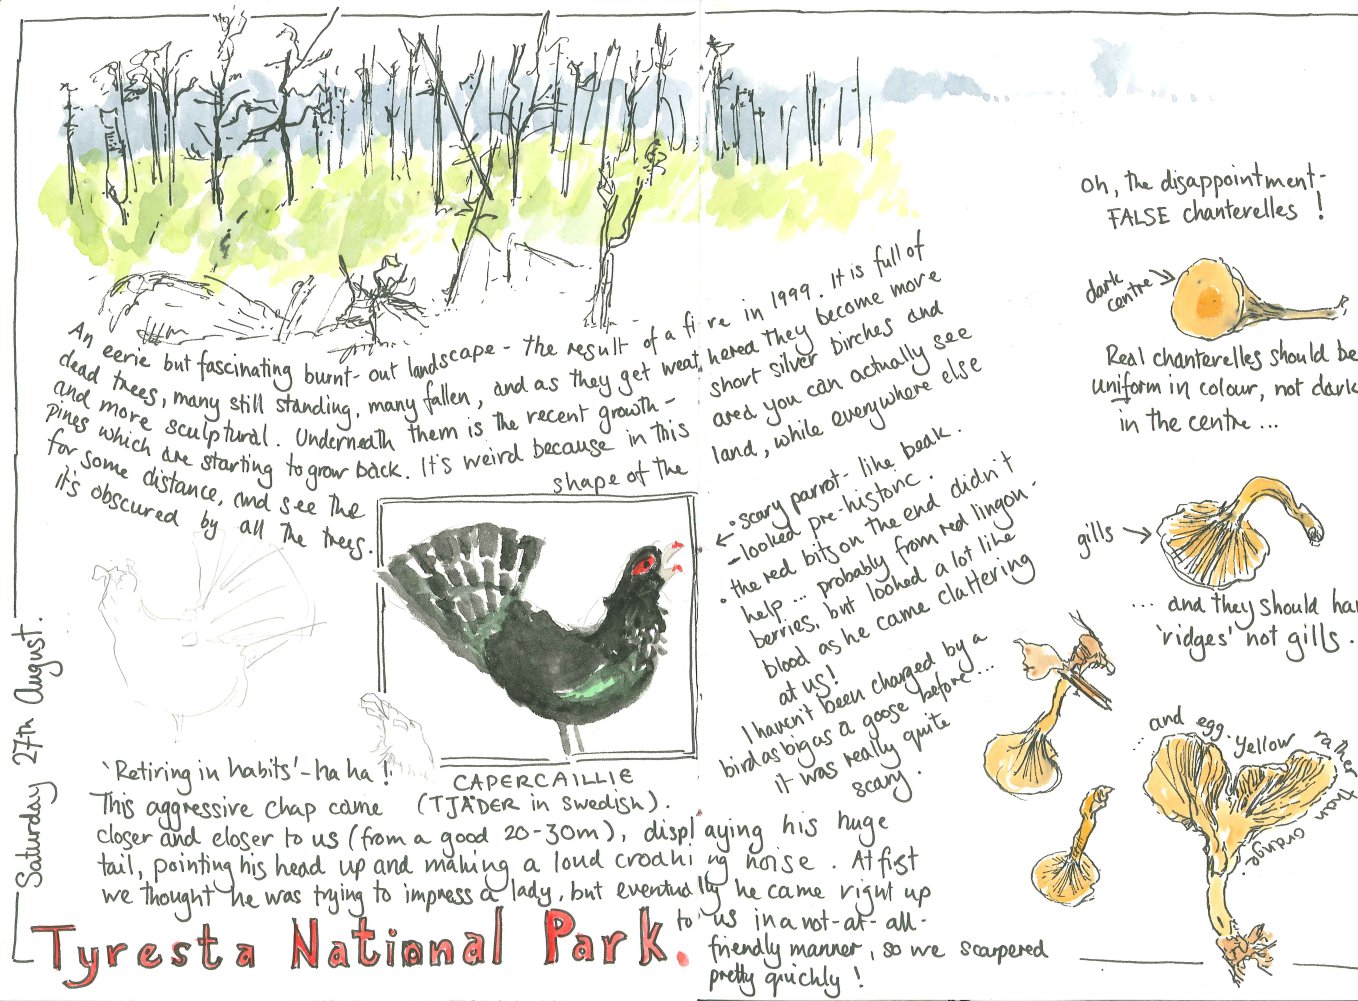 Saturday 27th August.
An eerie but fascinating burnt-out landscape - the result of a fire in 1999. It is full of
dead trees, many still standing, many fallen, and as they get weathered they become more
and more sculptural. Underneath them is the recent growth - short silver birches and
pines which are starting to grow back. It's weird because in this area you can actually see
for some distance, and see the shape of the land, while everywhere else
it's obscured by all the trees.
• scary parrot-like beak.
- looked pre-historic.
• the red bits on the end didn't
help ... probably from red lingon-
berries, but looked a lot like
blood as he came clattering
at us!
I haven't been charged by a
bird as big as a goose before...
it was really quite
scary.
CAPERCAILLIE
(TJÄDER in Swedish).
'Retiring in habits' - ha ha!
This aggressive chap came
closer and closer to us (from a good 20-30m), displaying his huge
tail, pointing his head up and making a loud croaking noise. At first
we thought he was trying to impress a lady, but eventually he came right up
to us in a not-at-all-
friendly manner, so we scarpered
pretty quickly!
Tyresta National Park.
Oh, the disappointment-
FALSE chanterelles!
dark
centre
Real chanterelles should be
uniform in colour, not dark
in the centre ...
gills
... and they should ha
'ridges' not gills.
... and egg-yellow rather than orange.